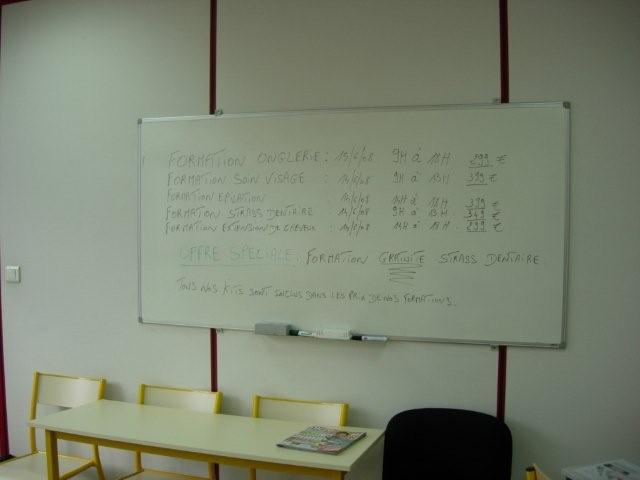 FORMATION ONGLERIE : 15/6/08 9H à 18H 399 €
FORMATION SOIN VISAGE : 14/6/08 9H à 13H 399 €
FORMATION EPILATION 14/6/08 14H à 18H 399 €
FORMATION STRASS DENTAIRE : 14/6/08 9H à 13H 349 €
FORMATION EXTENSION DE CHEVEUX : 14/6/08 14H à 18H 899 €
OFFRE SPECIALE : FORMATION GRATUITE STRASS DENTAIRE
TOUS NOS KITS SONT INCLUS DANS LES PRIX DE NOS FORMATIONS.